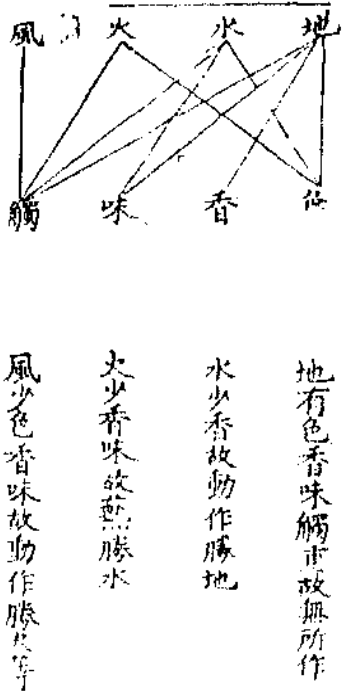 地 水 火 風
色 香 味 觸
地有色香味觸重故無所作
水少香故動作勝地
火少香味故勢勝水
風少色香味故動作勝火等